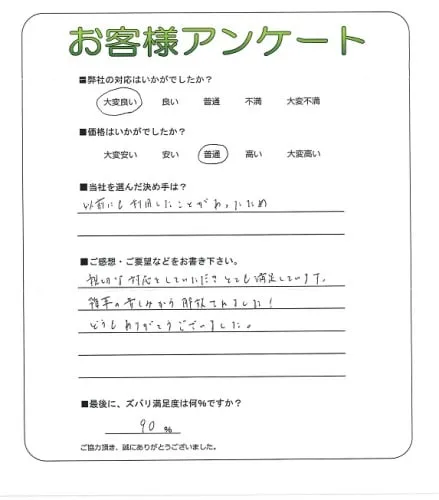 お客様アンケート
■弊社の対応はいかがでしたか?
大変良い 良い 普通 不満 大変不満
■価格はいかがでしたか?
大変安い 安い 普通 高い 大変高い
■当社を選んだ決め手は?
以前にも利用したことがあったため
■ご感想・ご要望などをお書き下さい。
親切な対応をしていただきとても満足しています。
雑草の苦しみから解放されました!
どうもありがとうございました。
■最後に、ズバリ満足度は何%ですか?
90 %
ご協力頂き、誠にありがとうございました。